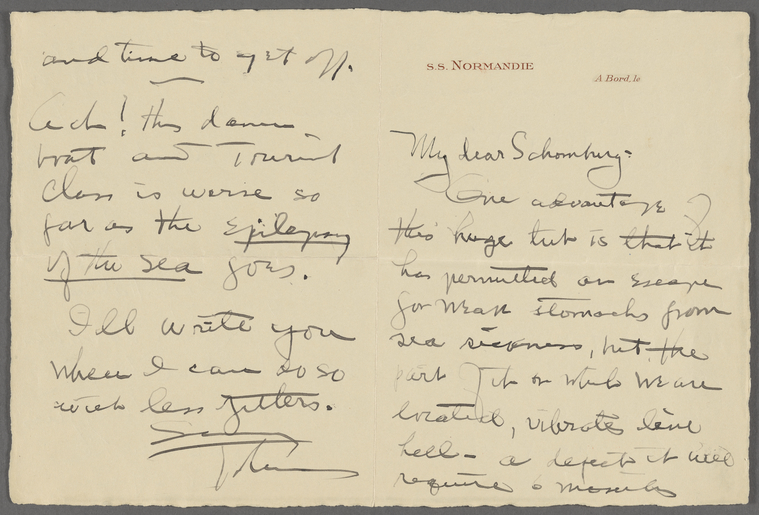 S.S. NORMANDIE
A Bord, le
My dear Schomburg:
One advantage of
this huge tub is that it
has permitted an escape
for weak stomachs from
sea sickness, but the
part of it on which we are
located, vibrates like
hell - a defect it will
require 6 months
and time to get off.
Ach! this damn
boat and Tourist
Class is worse so
far as the epilepsy
of the sea goes.
I'll write you
when I can do so
with less jitters.